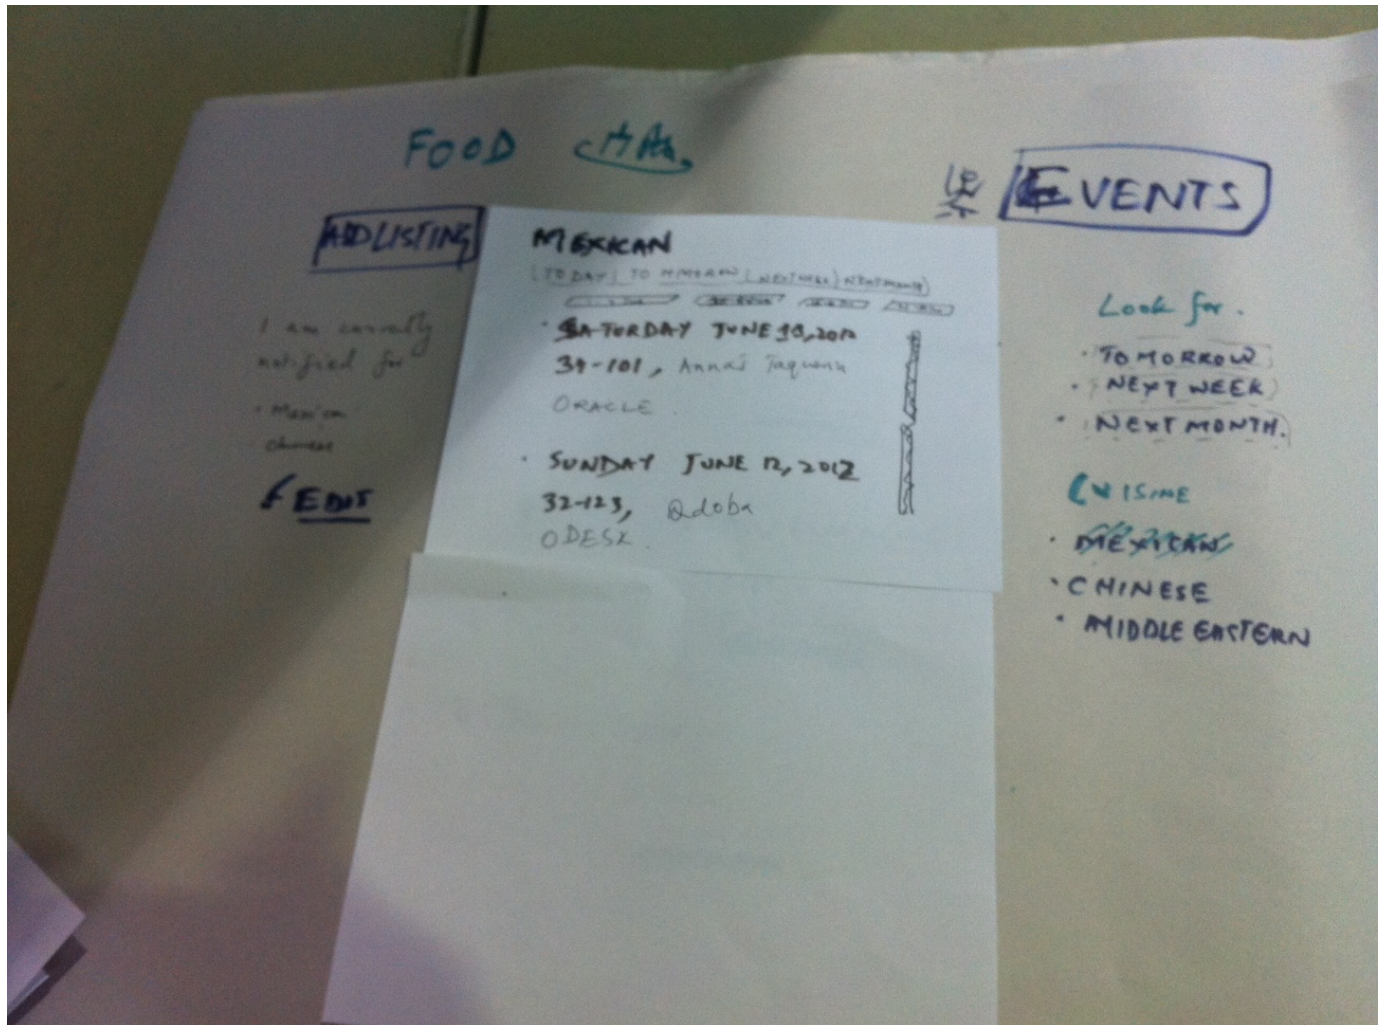 FOOD
EVENTS
ADD LISTING
I am currently
notified for
Mexican
Chinese
EDIT
MEXICAN
TODAY TOMMOROW NEXT WEEK NEXT MONTH
SATURDAY JUNE
34-101, Anna's Taqueria
ORACLE
SUNDAY JUNE 12, 2012
32-123, Qdoba
ODESK.
Look for.
TOMORROW
NEXT WEEK
NEXT MONTH.
CUISINE
MEXICAN
CHINESE
MIDDLE EASTERN